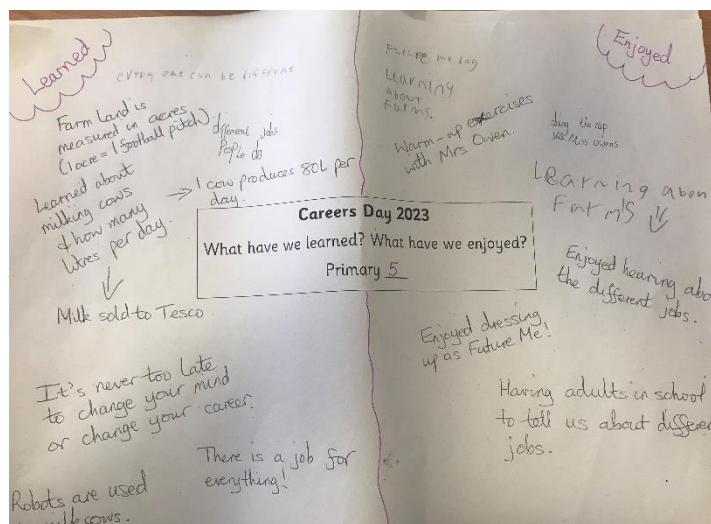 Learned
every one can be different
Farm Land is
measured in acres
(1 acre = 1 football pitch).
different jobs
People do
Learned about
milking cows
& how many
litres per day.
→ 1 cow produces 80L per
day.
Milk sold to Tesco
It's never too late
to change your mind
or change your career.
There is a job for
everything!
Robots are used
milk cows.
Careers Day 2023
What have we learned? What have we enjoyed?
Primary 5
Enjoyed
Future me
Learning
about
Farms.
Warm-up exercises
with Mrs Owen.
the rap
Miss owens
Learning abou
Farm's
Enjoyed hearing abo
the different jobs.
Enjoyed dressing
up as Future Me!
Having adults in school
to tell us about differe
jobs.